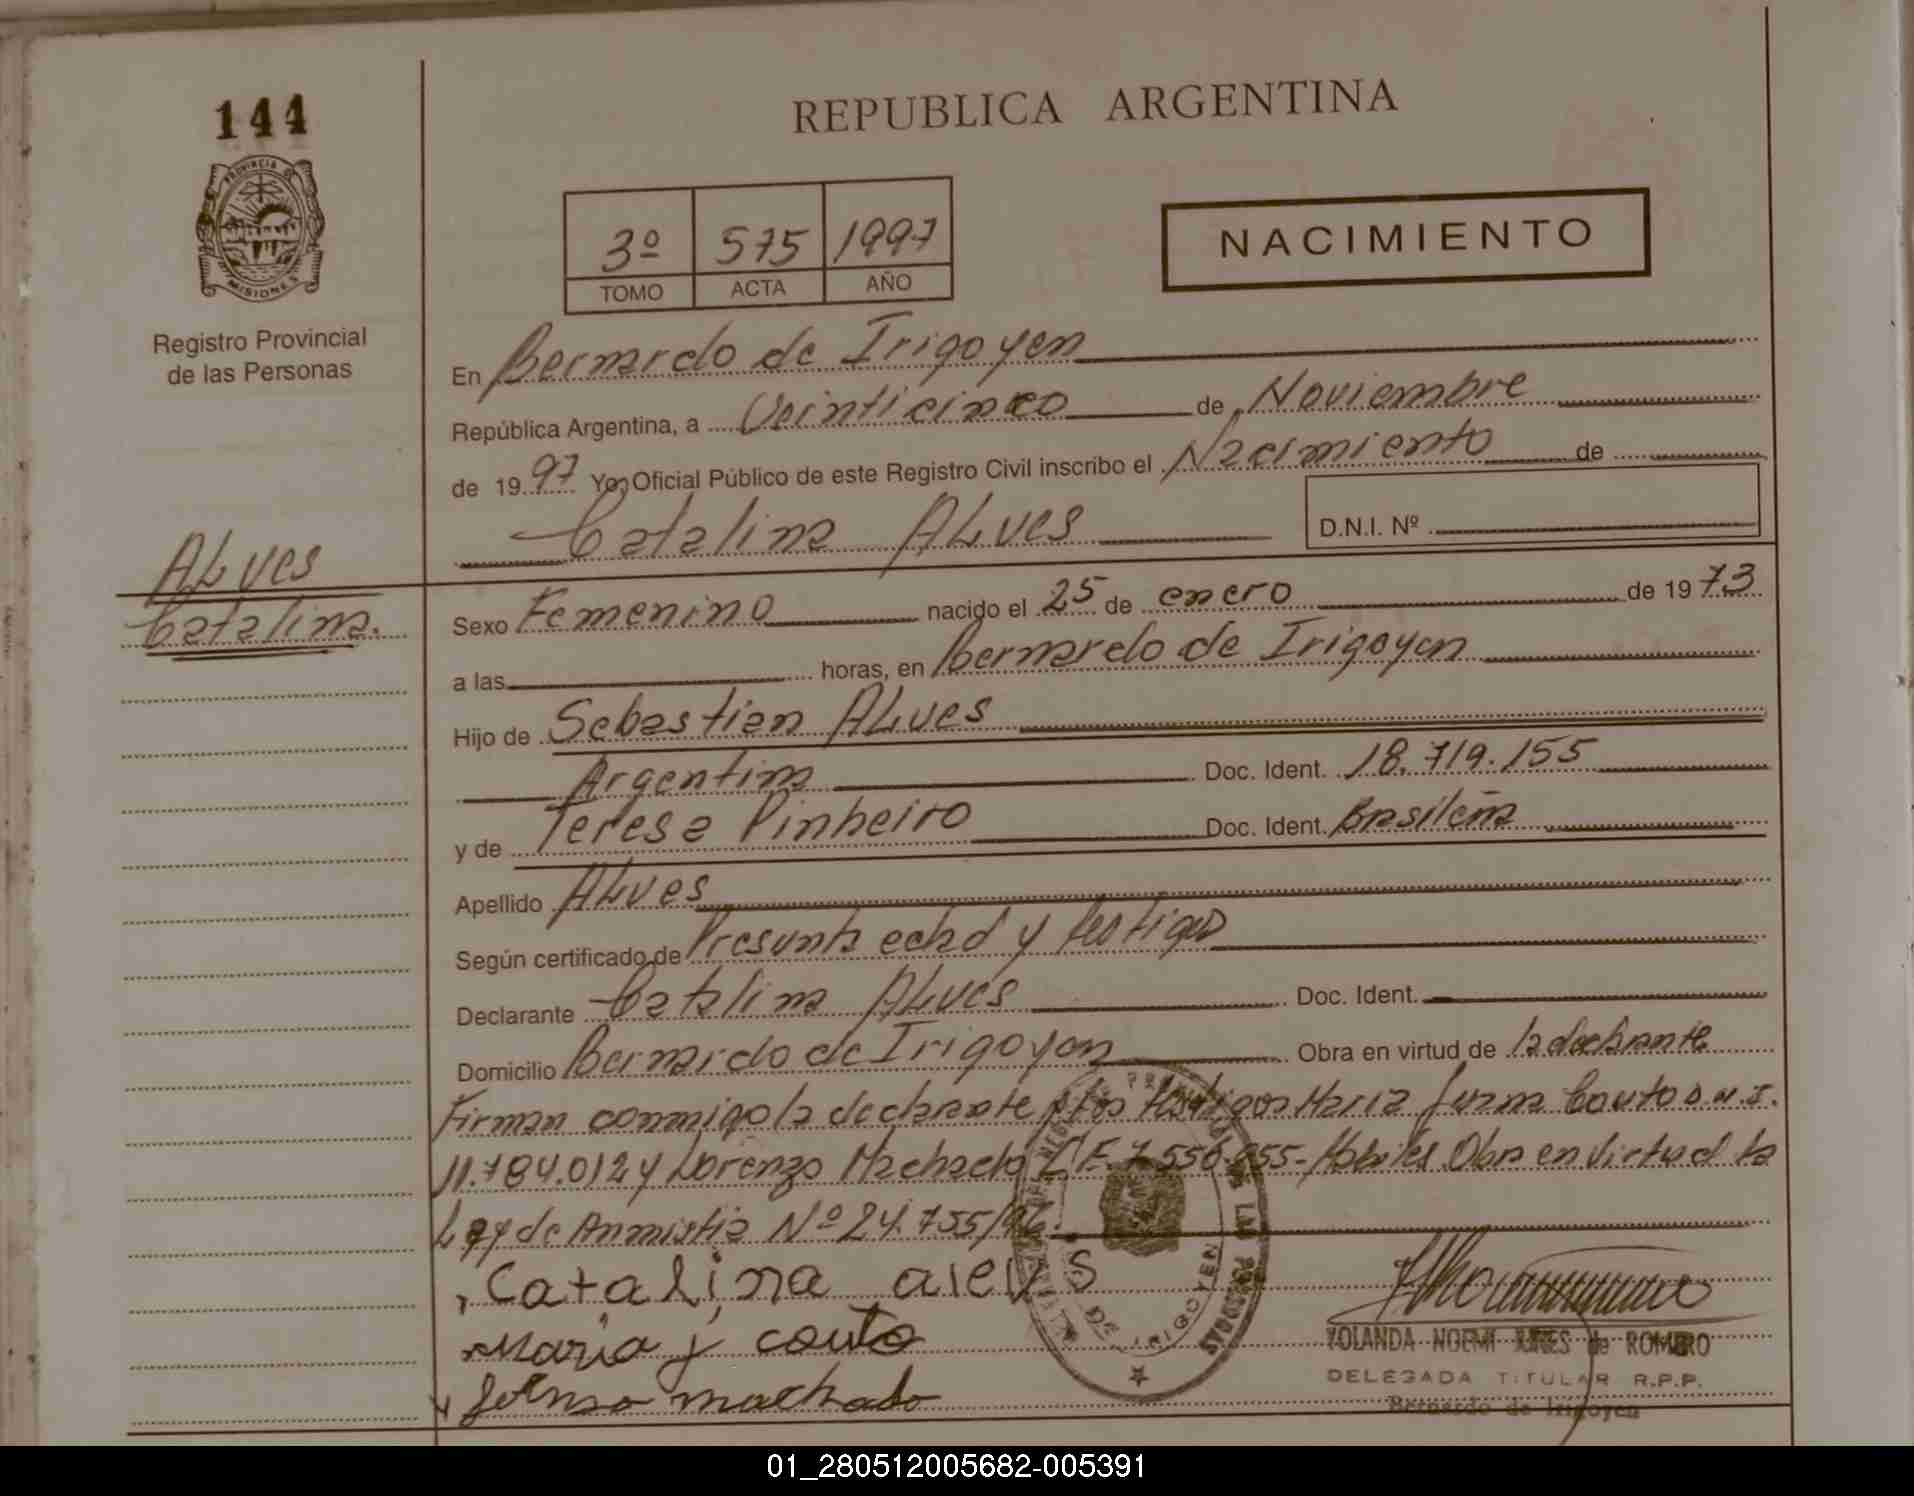 144
REPUBLICA ARGENTINA
PROVINCIA DE
MISIONES
Registro Provincial
de las Personas
3º 575 1997
TOMO ACTA AÑO
NACIMIENTO
En Bernardo de Irigoyen
República Argentina, a Veinticinco de Noviembre
de 1997 Yo, Oficial Público de este Registro Civil inscribo el Nacimiento de
Catalina ALves
D.N.I. Nº
ALves
Catalina.
Sexo Femenino nacido el 25 de enero de 1973
a las horas, en Bernardo de Irigoyen
Hijo de Sebastian ALves
Argentina Doc. Ident. 18.719.155
y de Teresa Pinheiro Doc. Ident. Brasileña
Apellido ALves
Según certificado de Presunta edad y testigos
Declarante Catalina ALves Doc. Ident.
Domicilio Bernardo de Irigoyen Obra en virtud de la declarante
Firman conmigo la declarante y los testigos Maria Couto D.N.I.
11.784.012 y Lorenzo Machado Habiles Obra en Virtud la
Ley de Anmistia Nº 24.755/96.
Catalina alevs
Maria j couto
machado
DE IRIGOYEN
YOLANDA NOEMI de ROMERO
DELEGADA TITULAR R.P.P.
Bernardo de Irigoyen
01_280512005682-005391